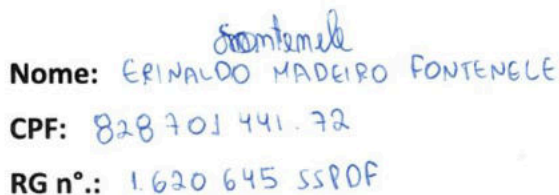 Fontenele
Nome: ERINALDO MADEIRO FONTENELE
CPF: 828 701 441.72
RG n°.: 1.620 645 SSPDF